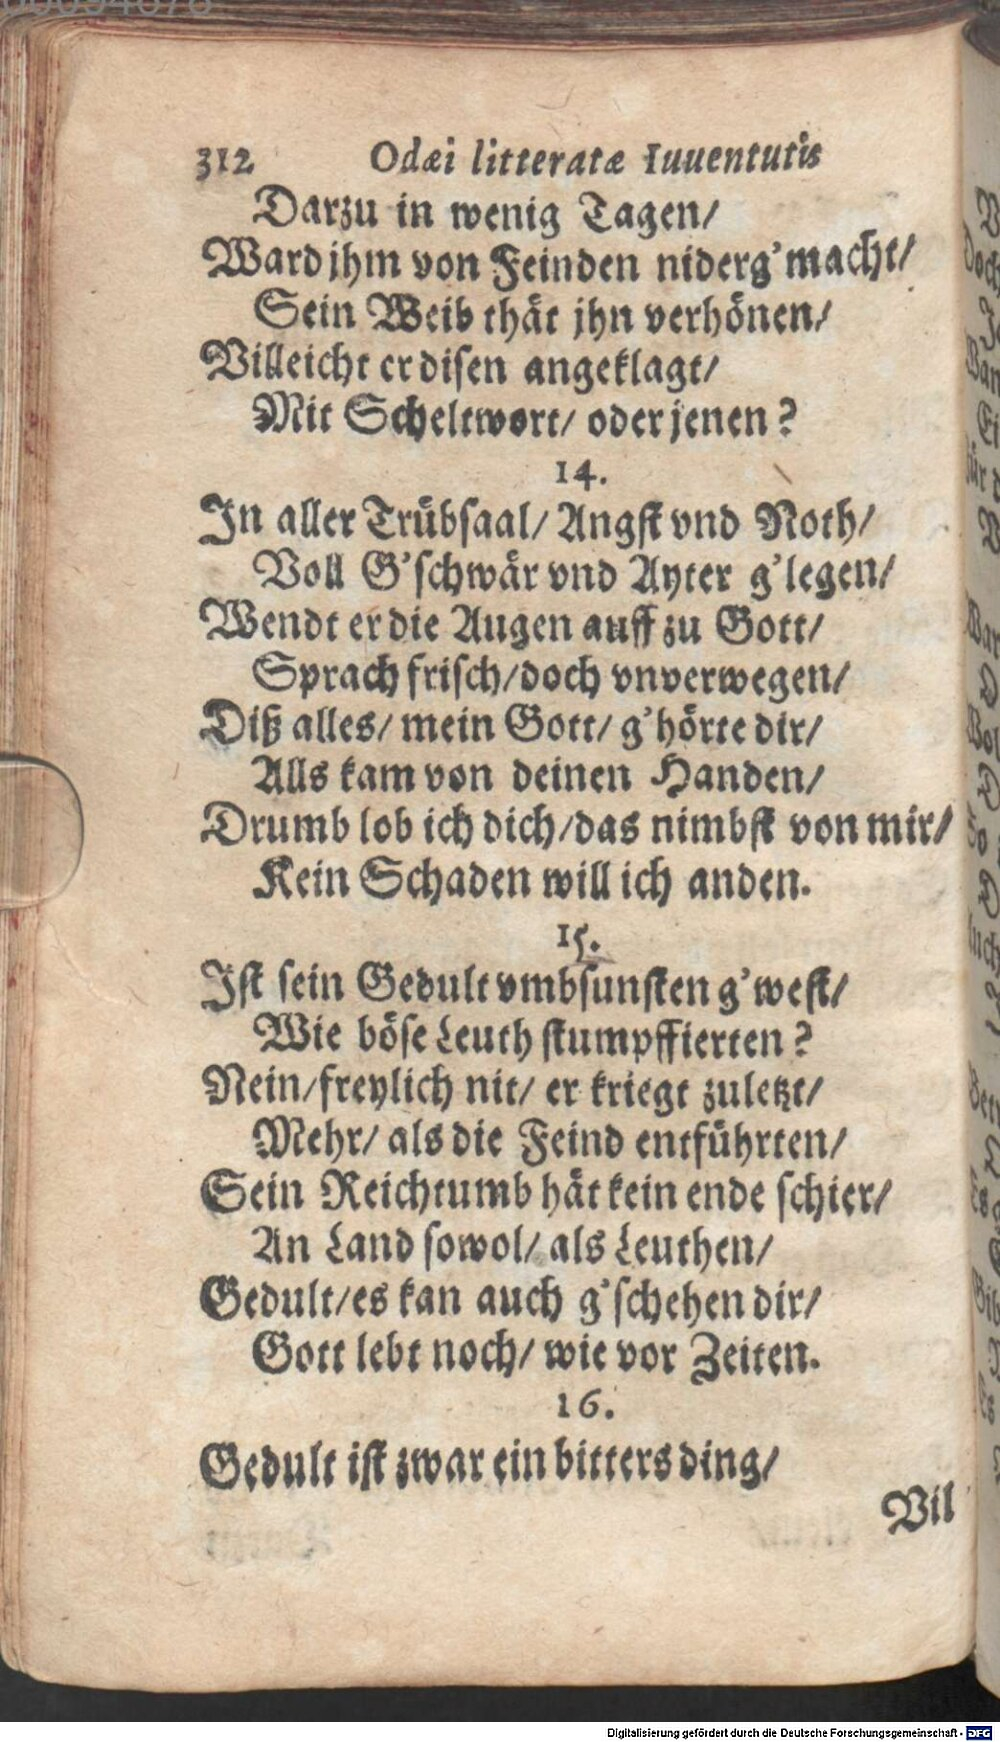 312 Odæi litteratæ Iuuentutis
Darzu in wenig Tagen/
Ward jhm von Feinden niderg'macht/
Sein Weib thät jhn verhönen/
Villeicht er disen angeklagt/
Mit Scheltwort/ oder jenen?
14.
In aller Trübsaal/ Angst vnd Noth/
Voll G'schwär vnd Ayter g'legen/
Wendt er die Augen auff zu Gott/
Sprach frisch/doch vnverwegen/
Diß alles/ mein Gott/ g'hörte dir/
Alls kam von deinen Handen/
Drumb lob ich dich/das nimbst von mir/
Kein Schaden will ich anden.
15.
Ist sein Gedult vmbsunsten g'west/
Wie böse Leuth stumpffierten?
Nein/freylich nit/ er kriegt zuletzt/
Mehr/ als die Feind entführten/
Sein Reichtumb hät kein ende schier/
An Land sowol/ als Leuthen/
Gedult/es kan auch g'schehen dir/
Gott lebt noch/ wie vor Zeiten.
16.
Gedult ist zwar ein bitters ding/
Vil
Digitalisierung gefördert durch die Deutsche Forschungsgemeinschaft - DFG